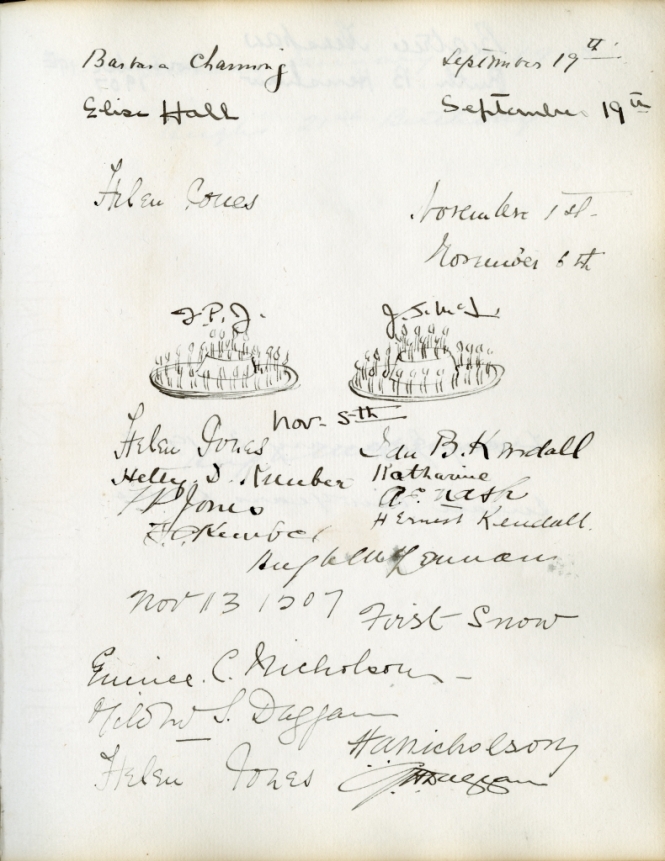 Barbara Channing September 19th
Elise Hall September 19th
Helen Jones November 1st
November 6th
F.P.J. J.S. McL
Nov. 5th
Helen Jones B. Kendall
D. Kember Katharine
F P Jones A.E. Nash
Kember H Ernest Kendall.
Hugh McLennan
Nov 13 1907 First Snow
Eunice C. Nicholson
S. Duggan
H.A. Nicholson
Helen Jones Duggan